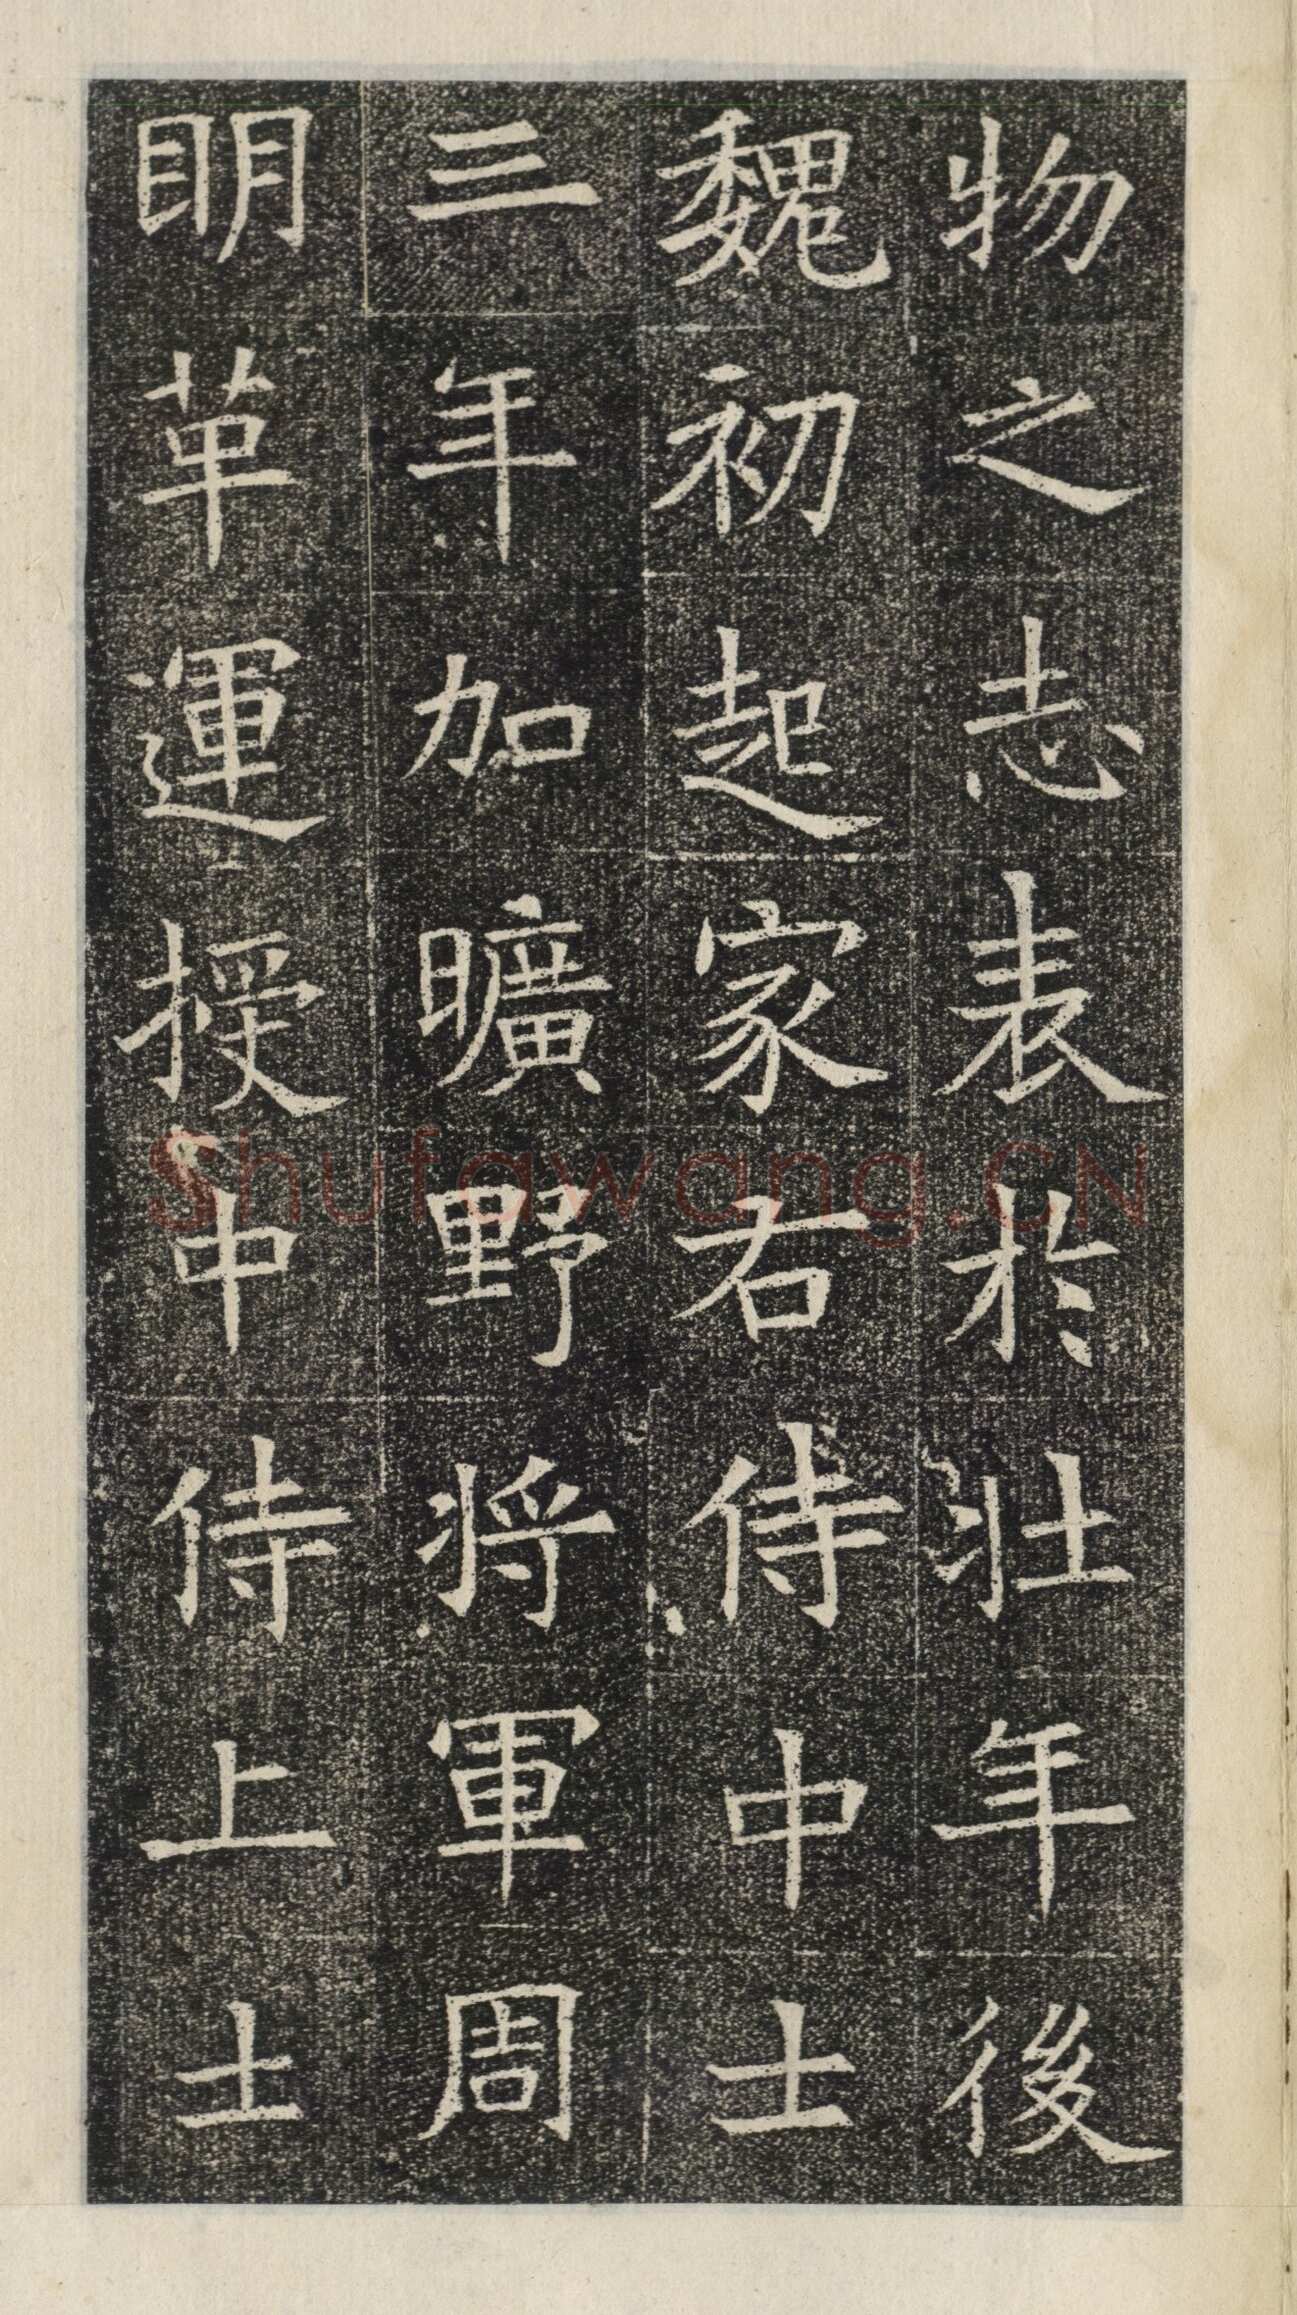 物之志表於壮年後
魏初起家右侍中士
三年加曠野將軍周
明革運授中侍上士
Shufawang.CN